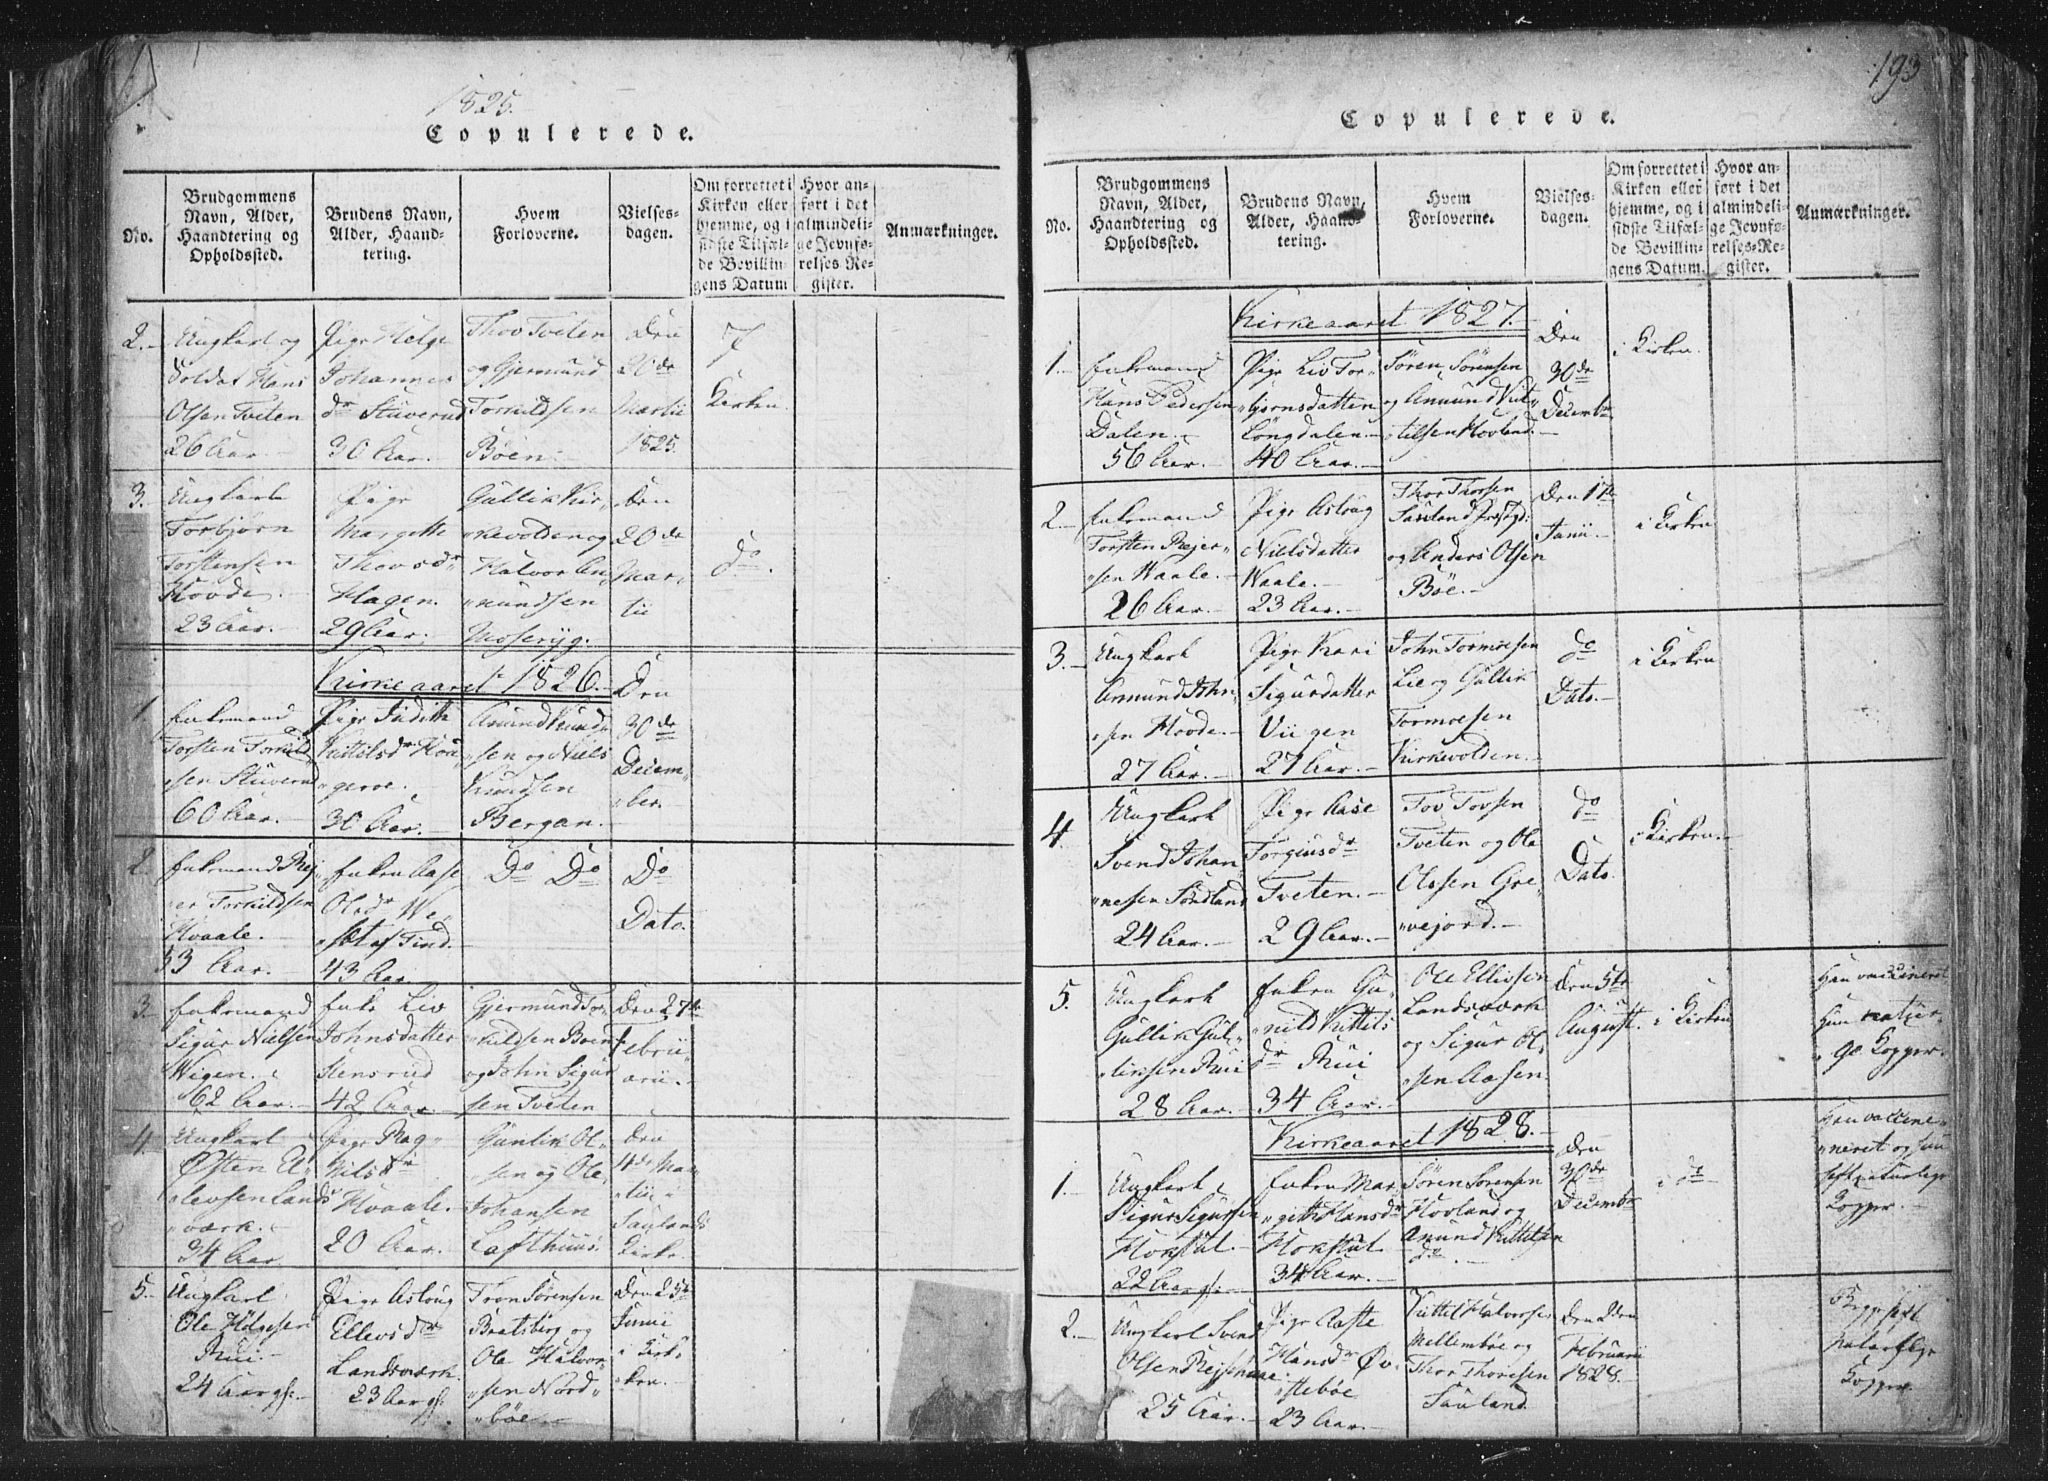 1825.
Copulerede.
No.
Brudgommens
Navn, Alder,
Haandtering og
Opholdssted.
Brudens Navn,
Alder, Haand-
tering.
Hvem
Forloverne.
Vielses-
dagen.
Om forrettet i
Kirken eller
hjemme, og i
sidste Tilfæl-
de Bevillin-
gens Datum
Hvor an-
ført i det
almindeli-
ge Jevnfø-
relses Re-
gister.
Anmærkninger.
2.
Ungkarl og
Soldat Hans
Olsen Tveten
26 Aar.
Pige Helge
Johannes
dr Stuverud
30 Aar.
Thov Tveten
og Gjermund
Torkildsen
Bøen.
Den
20de
Martii
1825.
Kirken.
3.
Ungkarl
Torbjørn
Torstensen
Hovde.
23 Aar.
Pige
Margethe
Thovsdr
Hagen.
29 Aar.
Gullik Kir„
„kevolden og
Halvor An„
„mundsen
Moserÿg.
Den
20de
Mar„
tii
do.
Kirkeaaret 1826.
1
Enkemand
Torsten Torkild
„sen Stuverud
60 Aar.
Pige Judith
Kittilsdr Hou
„geroe.
30 Aar.
Amund Knud„
„sen og Niels
Knudsen
Bergan.
Den
30de
Decem„
„ber.
2
Enkemand Rej„
„er Torkildsen
Hvaale.
53 Aar.
Enken Aase
Olsdr We„
af Tind.
43 Aar.
Do Do
Do
Dato.
3.
Enkemand
Sigur Nielsen
Wigen.
62 Aar.
Enke Liv
Johnsdatter
Stensrud
42 Aar.
Gjermund Tor„
„kildsen Boen
og John Sigur
sen Tveten
Den 27de
Febru„
arii.
4.
Ungkarl
Østen El„
„levsen Lands
„værk.
34 Aar
Pige Rag„
Nilsdr
Hvaale.
20 Aar.
Gunlik Ol„
sen og Ole
Johansen
Lofthuus.
Den
4de Mar„
„tii
Saulands
Kirke.
5.
Ungkarl
Ole Helgesen
Rui.
24 Aar gl.
Pige Aslaug
Ellevsdr
Landsværk
23 Aar gl.
Tron Sørensen
Bratsberg og
Ole Halvor
„sen Nord„
„bøe.
Den 25de
Junii
i Kirk„
„ken.
193
Copulerede.
No.
Brudgommens
Navn, Alder,
Haandtering og
Opholdssted.
Brudens Navn,
Alder, Haand-
tering.
Hvem
Forloverne.
Vielses-
dagen.
Om forrettet i
Kirken eller
hjemme, og i
sidste Tilfæl-
de Bevillin-
gens Datum.
Hvor an-
ført i det
almindeli-
ge Jevnfø-
relses-Re-
gister.
Anmærkninger.
Kirkeaaret 1827.
1.
Enkemand
Hans Pedersen
Dalen.
56 Aar.
Pige Liv Tor„
„bjørnsdatter
Løngdalen.
40 Aar.
Søren Sørensen
og Amund Kit„
„tilsen Hovland.
Den
30de
Decembr
i Kirken.
2.
Enkemand
Torsten Rejer„
„sen Waale.
26 Aar.
Pige Aslaug
Nielsdatter
Waale.
23 Aar.
Thor Thorsen
Sauland
og Anders Olsen
Bøe.
Den 1te
Junii.
i Kirken
3.
Ungkarl
Amund John„
„sen Hovde.
27 Aar.
Pige Kari
Sigursdatter
Viigen
27 Aar.
John Tormoesen
Lie og Gullik
Tormoesen
Kirkevolden.
do
Dato.
i Kirken
4.
Ungkarl
Svend Johan„
„nesen Sondland
24 Aar.
Pige Aase
Torgiusdr
Tveten.
29 Aar.
Tov Tovsen
Tveten og Ole
Olssen Gre„
„vejord.
do
Dato.
i Kirken.
5.
Ungkarl
Gullik Gul„
„liksen Rui
28 Aar.
Enken Gu„
„nild Kittels
dr Rui
34 Aar.
Ole Ellefsen
Landsværk
og Sigur Ol„
„sen Aasen.
Den 5te
August.
i Kirken
Han vaccineret
Hun natur„
„ge Kopper.
Kirkeaaret 1828.
1.
Ungkarl
Sigur Sigursen
Hokstul
22 Aar gl.
Enken Mar„
„gith Hansdr
Hokstul
34 Aar.
Søren Sørensen
Hovland og
Amund Kittelsen
do.
Den
30de
Decembr
i do
Han vaccine„
„neret og hun
havt naturlige
Kopper.
2.
Ungkarl Svend
Olsen Rejsjaae
25 Aar.
Pige Aaste
Hansdr Øv„
„stebøe
23 Aar.
Kittel Halvorsen
Mellembøe og
Thor Thoresen
Sauland
Den 2den
Februarii
1828.
Begge havt
naturlige
Kopper